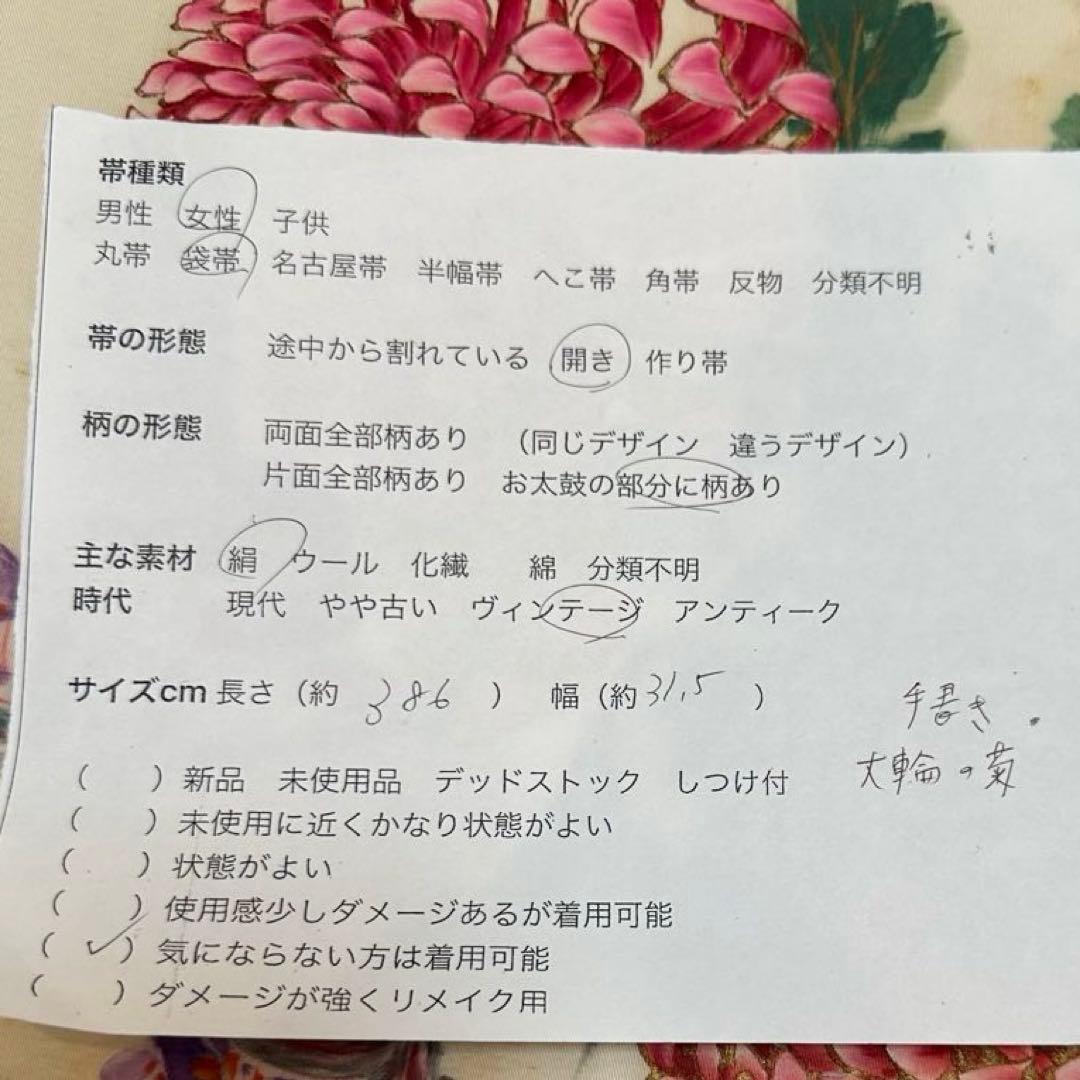 帯種類
男性 女性 子供
丸帯 袋帯 名古屋帯 半幅帯 へこ帯 角帯 反物 分類不明
帯の形態 途中から割れている 開き 作り帯
柄の形態 両面全部柄あり （同じデザイン 違うデザイン）
片面全部柄あり お太鼓の部分に柄あり
主な素材 絹 ウール 化繊 綿 分類不明
時代 現代 やや古い ヴィンテージ アンティーク
サイズcm 長さ（約 386 ） 幅（約 31.5 ）
手書き.
大輪の菊
（ ）新品 未使用品 デッドストック しつけ付
（ ）未使用に近くかなり状態がよい
（ ）状態がよい
（ ）使用感少しダメージあるが着用可能
（ ✓ ）気にならない方は着用可能
（ ）ダメージが強くリメイク用